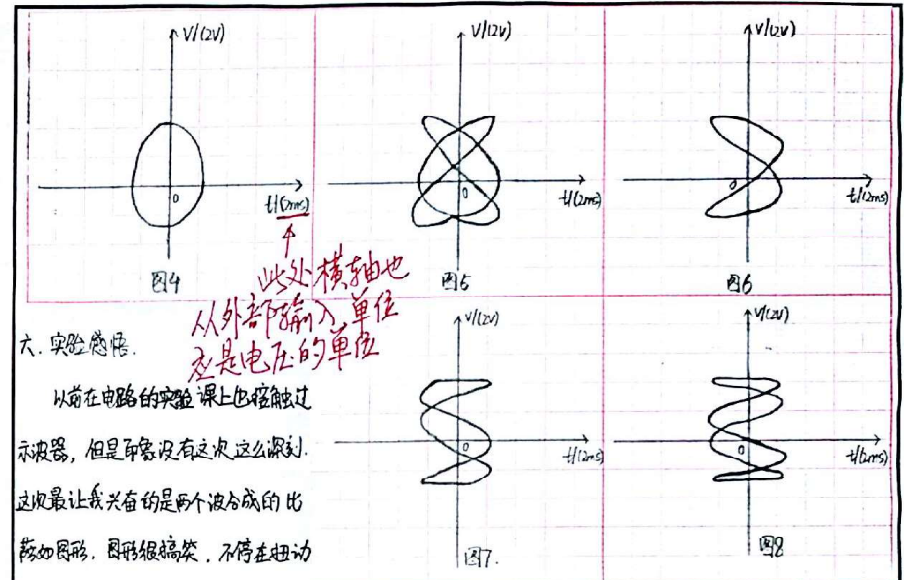 V/(2V)
t/(2ms)
0
图4
V/(2V)
t/(2ms)
0
图5
V/(2V)
t/(2ms)
0
图6
此处横轴也
从外部输入单位
应是电压的单位
六.实验感悟.
以前在电路的实验课上也接触过
示波器，但是印象没有这次这么深刻.
这次最让我兴奋的是两个波合成的比
萨如图形.图形很搞笑，不停在扭动
V/(2V)
t/(2ms)
0
图7.
V/(2V)
t/(2ms)
0
图8